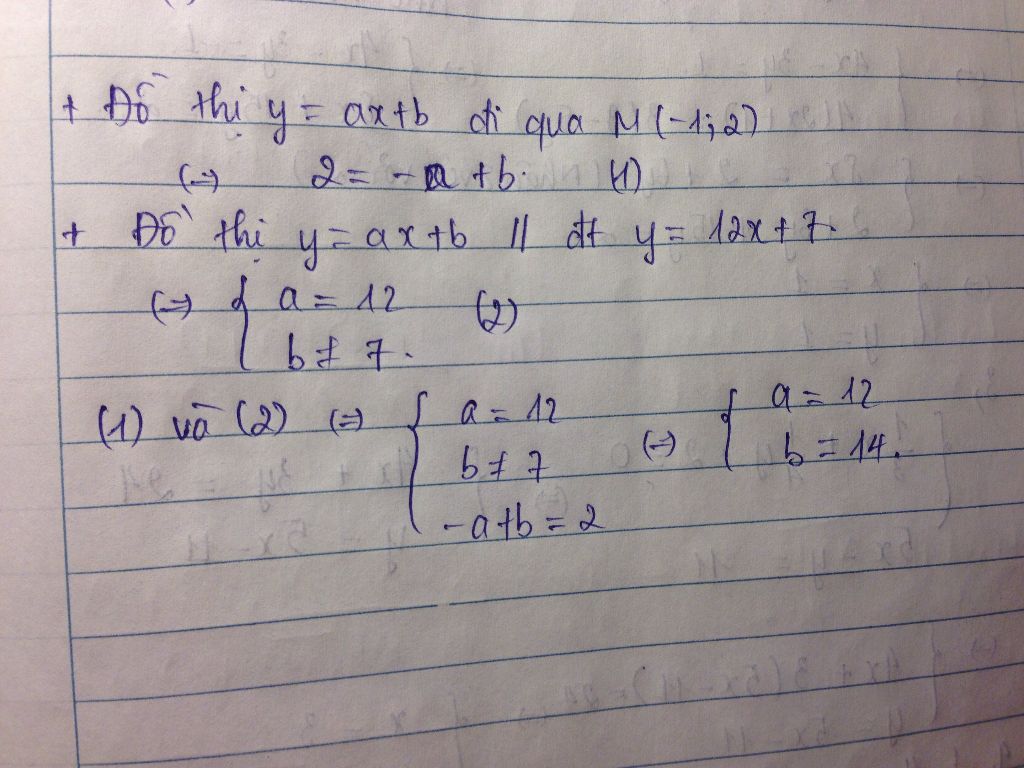 + Đồ thị y = ax+b đi qua M(-1;2)
(=) 2 = -a +b. (1)
+ Đồ thị y = ax+b // đt y = 12x+7.
(=) { a = 12 (2)
b ≠ 7.
(1) và (2) (=) { a = 12 (=) { a = 12
b ≠ 7 b = 14.
-a+b = 2